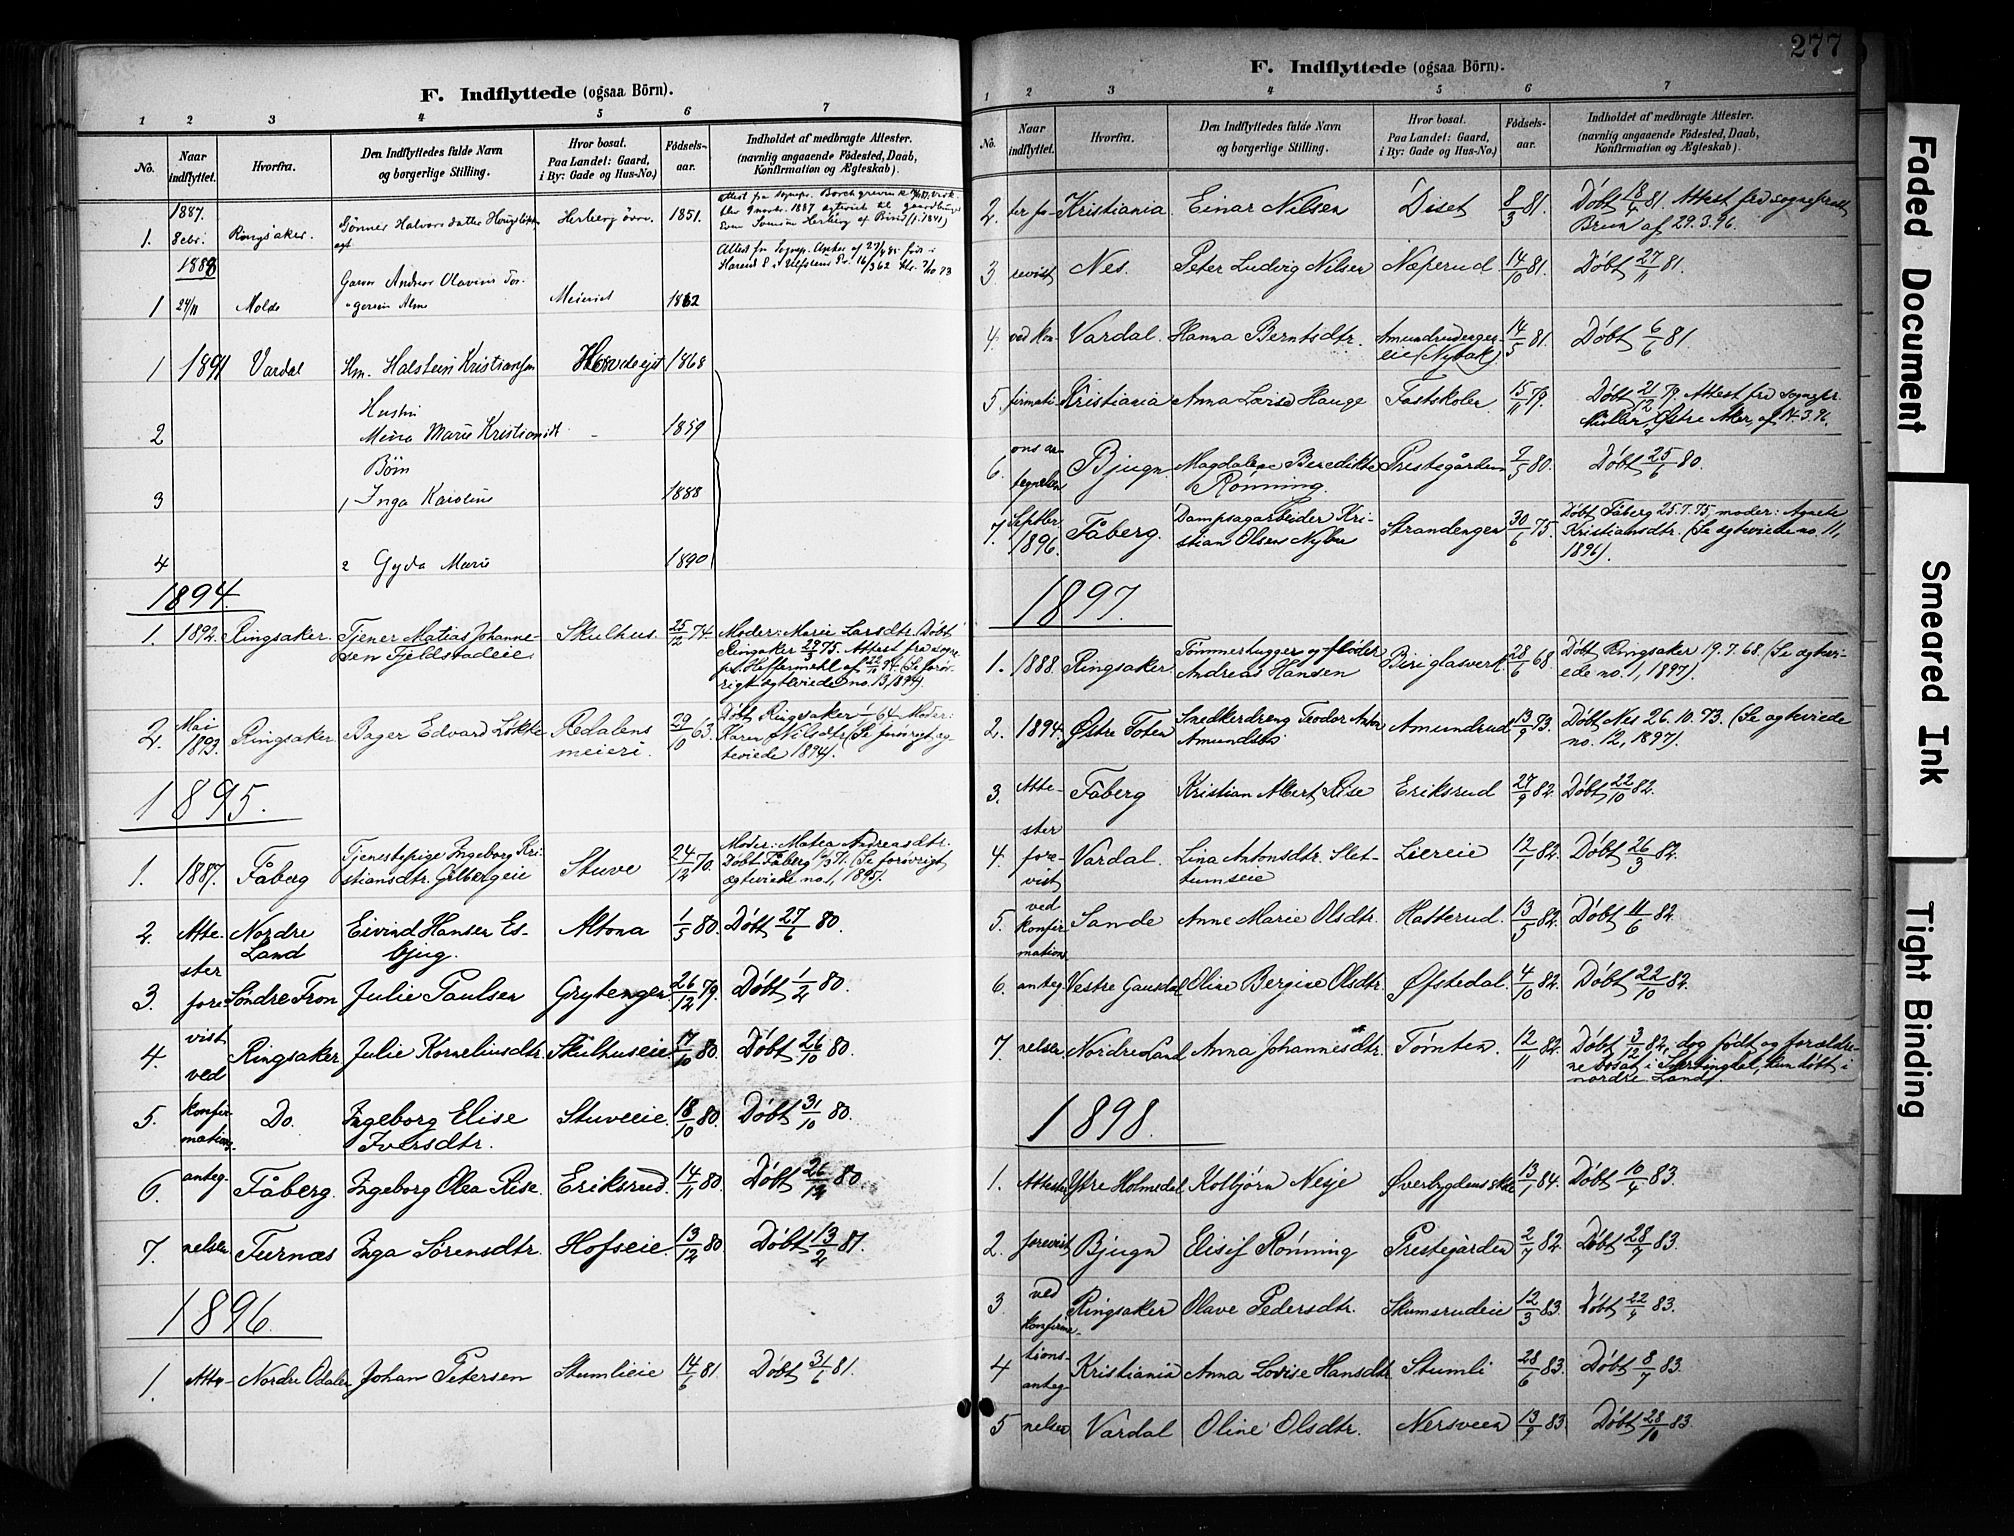 F. Indflyttede (ogsaa Börn).
1 2 3 4 5 6 7
No. Naar indflyttet. Hvorfra. Den Indflyttedes fulde Navn og borgerlige Stilling. Hvor bosat. Paa Landet: Gaard, i By: Gade og Hus-No.) Fødsels-aar. Indholdet af medbragte Attester. (navnlig angaaende Fødested, Daab, Konfirmation og Ægteskab).
1887.
1. Ringsaker. Gønner Halvorsdatter Herberg övre. 1851.
1888
1 24/11 Molde Garm Andreas Olavius Meieriet 1862
1 1891 Vardal Hm. Halstein Kristiansen 1868
Hustru
2 Mina Marie 1859
Børn
3 1 Inga Karoline 1888
4 2 Gyda Marie 1890
1894.
1. 1892. Ringsaker. Tjener Matias Johanne- Skulhus. 25/12 74 Moder: Marie Larsdtr. Døbt
sen Fjeldstadeie Ringsaker 75. Attest fra sogne-
rigt ægteviede no. 13, 1894).
2. Mai 1893. Ringsaker Bager Edvard Løkke Redalens meieri. 29/10 63. Døbt Ringsaker 1/1 64. Moder:
Karen Nilsdtr. (Se forøvrigt æg-
teviede 1894).
1895.
1. 1887. Fåberg Tjenestepige Ingeborg Kri- Stuve 24/12 70. Moder: Matea Andreasdtr.
stiansdtr. Gilbergeie Døbt Fåberg 71. (Se forøvrigt
ægteviede no. 1, 1895).
2. Atte- Nordre Land Eivind Hansen Es- Altona 1/5 80. Døbt 27/6 80.
ster bjug.
3. fore- Søndre Fron Julie Paulsen Grytengen 26/12 79. Døbt 1/2 80.
4. vist ved Ringsaker Julie Korneliusdtr. Skulhuseie 17/10 80. Døbt 26/10 80.
5. konfir-mations- Do. Ingeborg Elise Iversdtr. Stuveeie. 18/10 80. Døbt 31/10 80.
6. anteg- Fåberg. Ingeborg Olea Rise. Eriksrud. 14/11 80. Døbt 26/12 80.
7. nelsen Furnæs Inga Sørensdtr. Hofseie. 13/12 80. Døbt 13/2 81.
1896.
1. Atte- Nordre Odalen Johan Petersen Stumlieie 14/6 81. Døbt 31/6 81.
277
F. Indflyttede (ogsaa Börn).
1 2 3 4 5 6 7
No. Naar indflyttet. Hvorfra. Den Indflyttedes fulde Navn og borgerlige Stilling. Hvor bosat. Paa Landet: Gaard, i By: Gade og Hus-No.) Fødsels-aar. Indholdet af medbragte Attester. (navnlig angaaende Fødested, Daab, Konfirmation og Ægteskab).
2. ster fo- Kristiania. Einar Nilsen Diset 8/3 81. Døbt 18/4 81. Attest fra sogneprest
Bruun af 29.3.96.
3 revist Nes. Peter Ludvig Nilsen Næperud 14/10 81. Døbt 27/11 81.
4. ved kon- Vardal. Hanna Berntsdtr. Amundrudenger- 14/5 81. Døbt 6/6 81.
eie (Nybak).
5. firmati- Kristiania Anna Lovise Hauge Fastskolen 15/11 79. Døbt 21/12 79. Attest fra sognepr.
Müller, Østre Aker, af 14.3.96.
6. ons an-tegnelsen Bjugn. Magdalene Benedikte Rønning. Prestegården 2/5 80. Døbt 25/6 80.
7. Septbr. 1896. Fåberg. Dampsagarbeider Kri- Strandengen 30/6 75. Døbt Fåberg 25.7.75, moder: Agnete
stian Olsen Nybu Kristiansdtr. (Se ægteviede no. 11,
1896).
1897.
1. 1888. Ringsaker Tømmerhugger og fløder Biri glasverk. 28/6 68. Døbt Ringsaker 19.7.68. (Se ægtevi-
Andreas Hansen ede no. 1, 1897).
2. 1894. Østre Toten Snedkerdreng Teodor Anton Amundrud 13/9 73. Døbt Nes 26.10.73. (Se ægteviede
Amundsen no. 12, 1897).
3. Atte- Fåberg Kristian Albert Rise Eriksrud 27/9 82. Døbt 22/10 82.
ster
4. fore-vist Vardal. Lina Antonsdtr. Slet- Liereie 12/1 82. Døbt 26/3 82.
tumseie
5. ved konfir-mations Sande Anne Marie Olsdtr. Hatterud. 13/5 82. Døbt 11/6 82.
6. anteg- Vestre Gausdal Oline Bergine Olsdtr. Øfstedal. 4/10 82. Døbt 22/10 82.
7. nelsen Nordre Land Anna Johannesdtr. Tømten. 12/11 82. Døbt 3/12 82, dog født og forældre-
ne bosat i Snertingdal, kun døbt i
nordre Land.
1898.
1. Attester Ytre Holmedal Kolbjørn Nesje Øverbygdens skole 13/1 84. Døbt 10/4 83.
2. forevist Bjugn Elisif Rønning Prestegården 2/7 82. Døbt 28/7 83.
3. ved konfirma- Ringsaker Olave Pedersdtr. Skumsrudeie 12/3 83. Døbt 22/4 83.
4 tions-anteg- Kristiania Anna Lovise Hansdtr. Stumli 28/6 83. Døbt 8/7 83.
5 nelsen Vardal Oline Olsdtr. Nersveen 13/9 83. Døbt 28/10 83.
Faded Document
Smeared Ink
Tight Binding